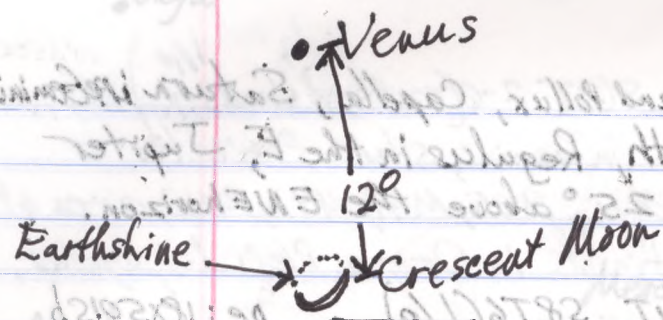 Venus
12°
Earthshine
Crescent Moon